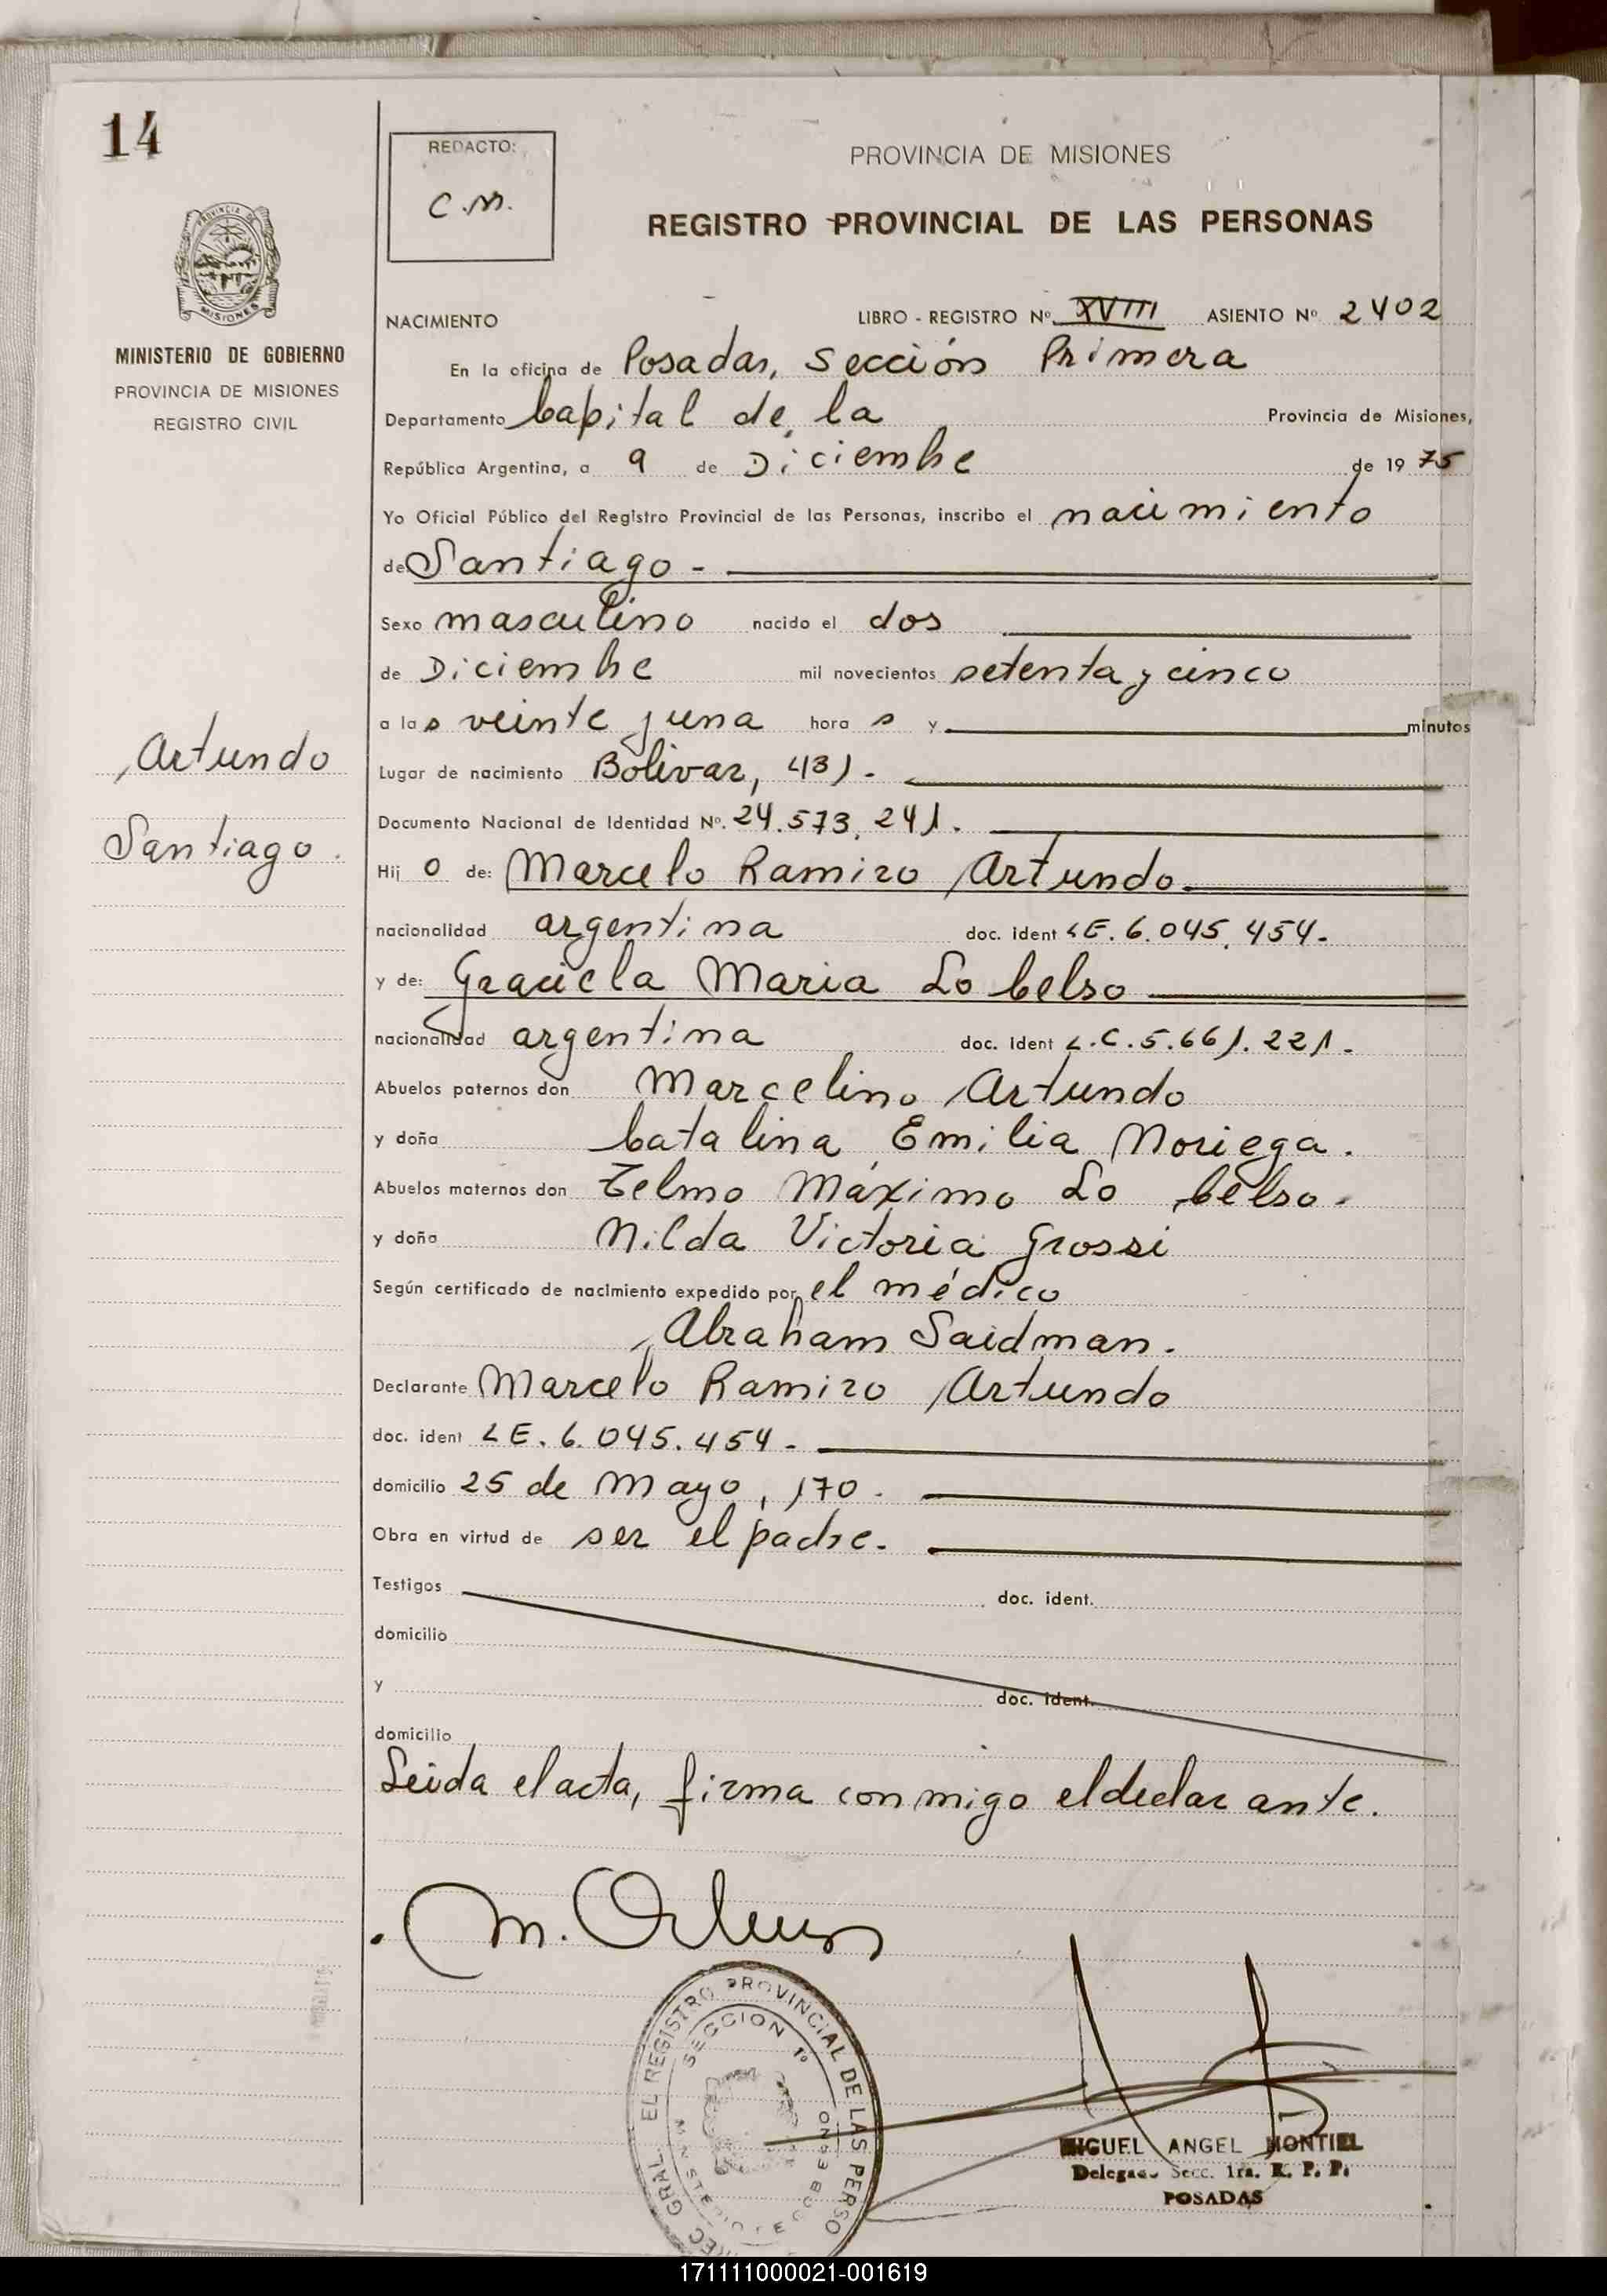 14
REDACTO:
C.M.
PROVINCIA DE MISIONES
REGISTRO PROVINCIAL DE LAS PERSONAS
PROVINCIA DE
MISIONES
MINISTERIO DE GOBIERNO
PROVINCIA DE MISIONES
REGISTRO CIVIL
NACIMIENTO LIBRO - REGISTRO Nº XVIII ASIENTO Nº 2402
En la oficina de Posadas, Sección Primera
Departamento Capital de la Provincia de Misiones,
República Argentina, a 9 de Diciembre de 1975
Yo Oficial Público del Registro Provincial de las Personas, inscribo el nacimiento
de Santiago -
Sexo masculino nacido el dos
de Diciembre mil novecientos setenta y cinco
a las veinte y una horas y minutos
Artundo
Santiago.
Lugar de nacimiento Bolivar, 431.-
Documento Nacional de Identidad Nº. 24.573.241.
Hijo de: Marcelo Ramiro Artundo.
nacionalidad argentina doc. ident LE. 6.045.454.-
y de: Graciela Maria Lo Celso
nacionalidad argentina doc. ident L.C. 5.661.221.-
Abuelos paternos don Marcelino Artundo
y doña Catalina Emilia Noriega.
Abuelos maternos don Telmo Máximo Lo Celso.
y doña Nilda Victoria Grossi
Según certificado de nacimiento expedido por el médico
Abraham Saidman.
Declarante Marcelo Ramiro Artundo
doc. ident LE. 6.045.454.-
domicilio 25 de Mayo, 170.
Obra en virtud de ser el padre.
Testigos doc. ident.
domicilio
y doc. ident.
domicilio
Leida el acta, firma conmigo el declarante.
REGISTRO PROVINCIAL DE LAS PERSO
SECCION 1º
MIGUEL ANGEL MONTIEL
Delegado Secc. 1ra. R. P. P.
POSADAS
171111000021-001619